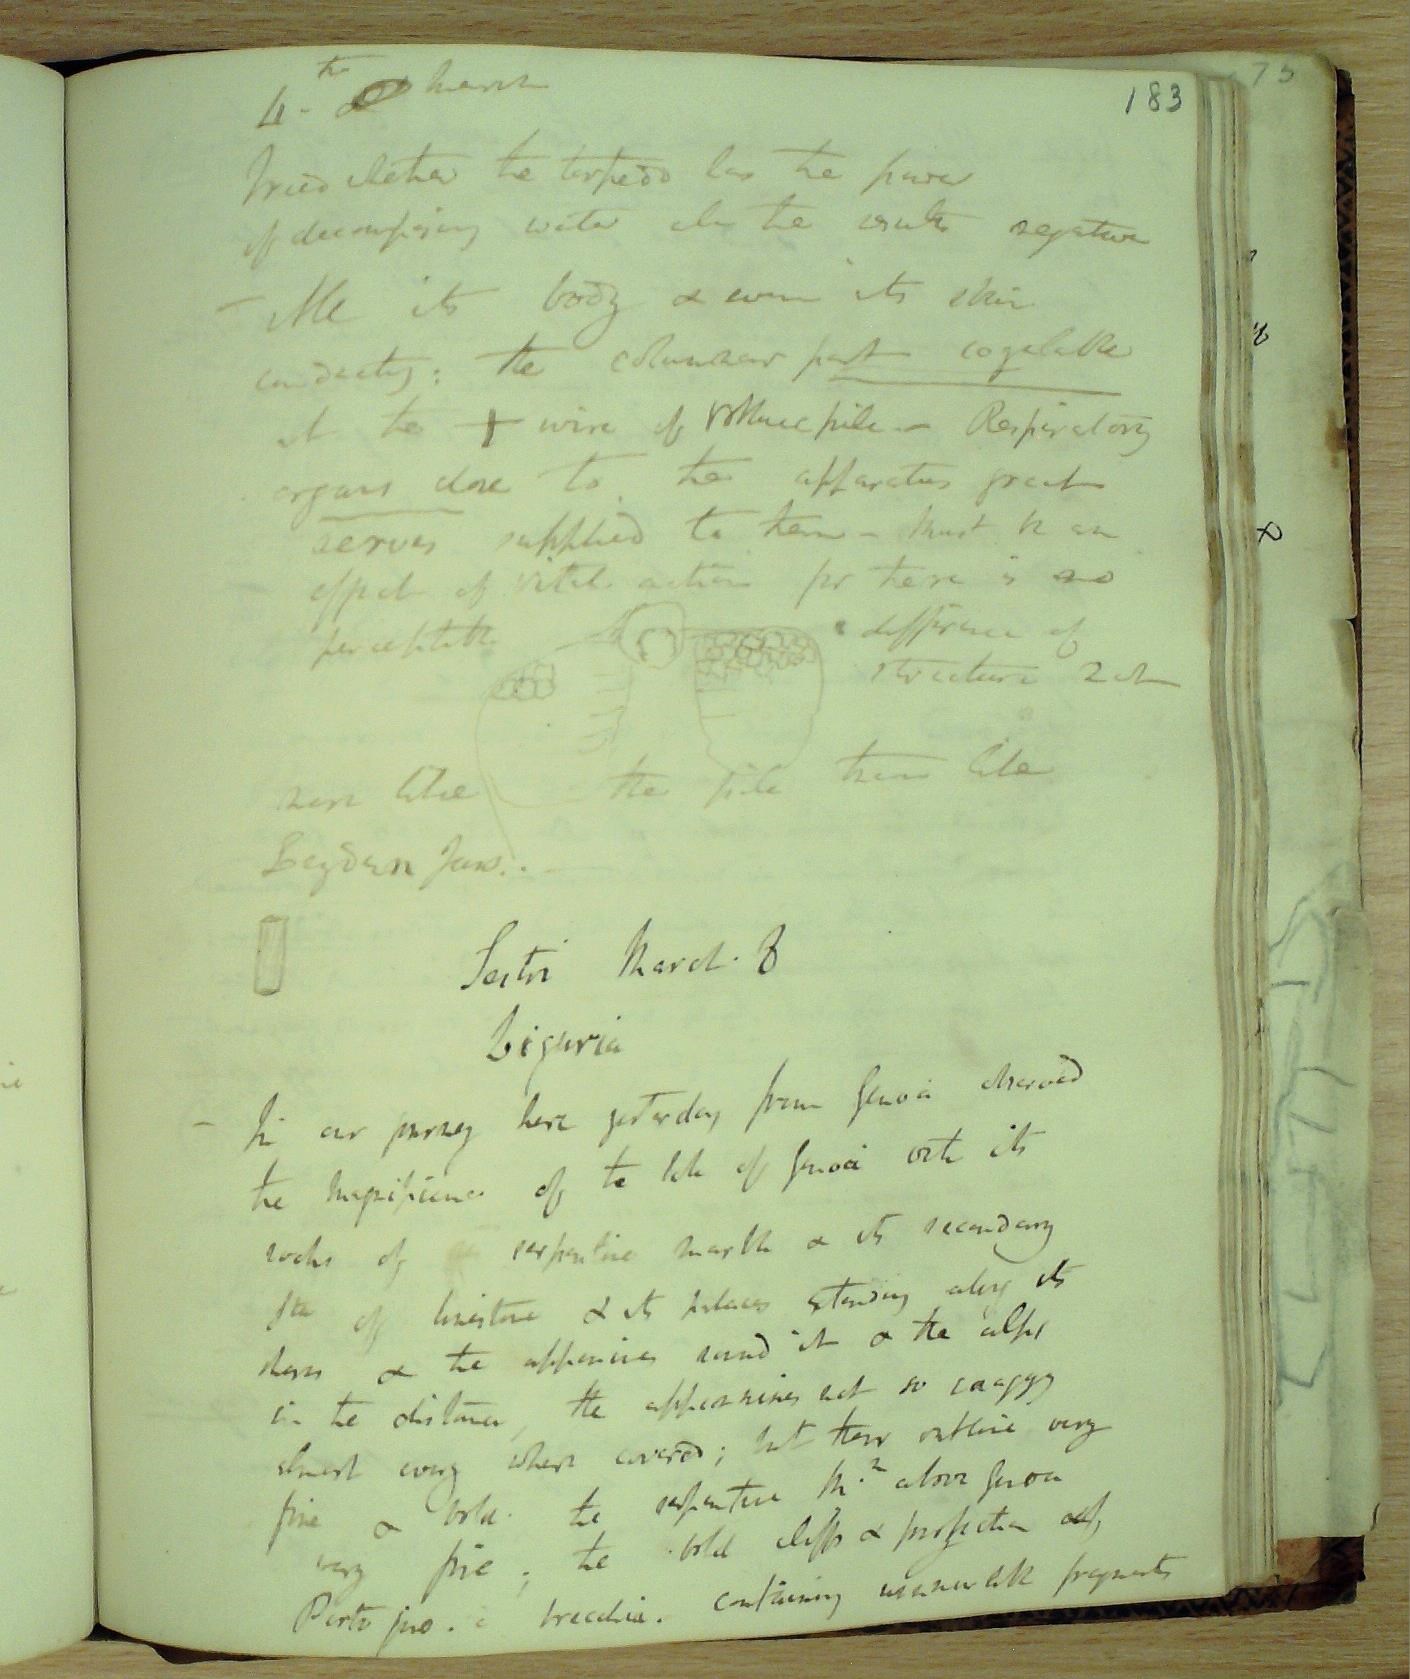 183
4.th March
Tried whether the torpedo has the power
of decomposing water all the results negative
— All its body & even its skin
conducting; the columnar part cogulable
at the + wire of Voltaic pile. — Respiratory
organs close to the apparatus great
nerves supplied to them — Must be an
effect of vital action for there is no
perceptible difference of
structure & at
more like the pile than like
Leyden Jars. —
Sestri March. 8
Liguria
— In our journey here yesterday from Genoa observed
the magnificence of the of Genoa with its
rocks of serpentine marble & its secondary
of limestone & its palaces extending along its
shores & the appenines round it & the alps
in the distance, the appennines not so craggy
almost every where covered; but their outline very
fine & bold. the serpentine M.n above Genoa
very fine; the bold cliffs & projection of
Porto fino. a breccia. containing innumerable fragments